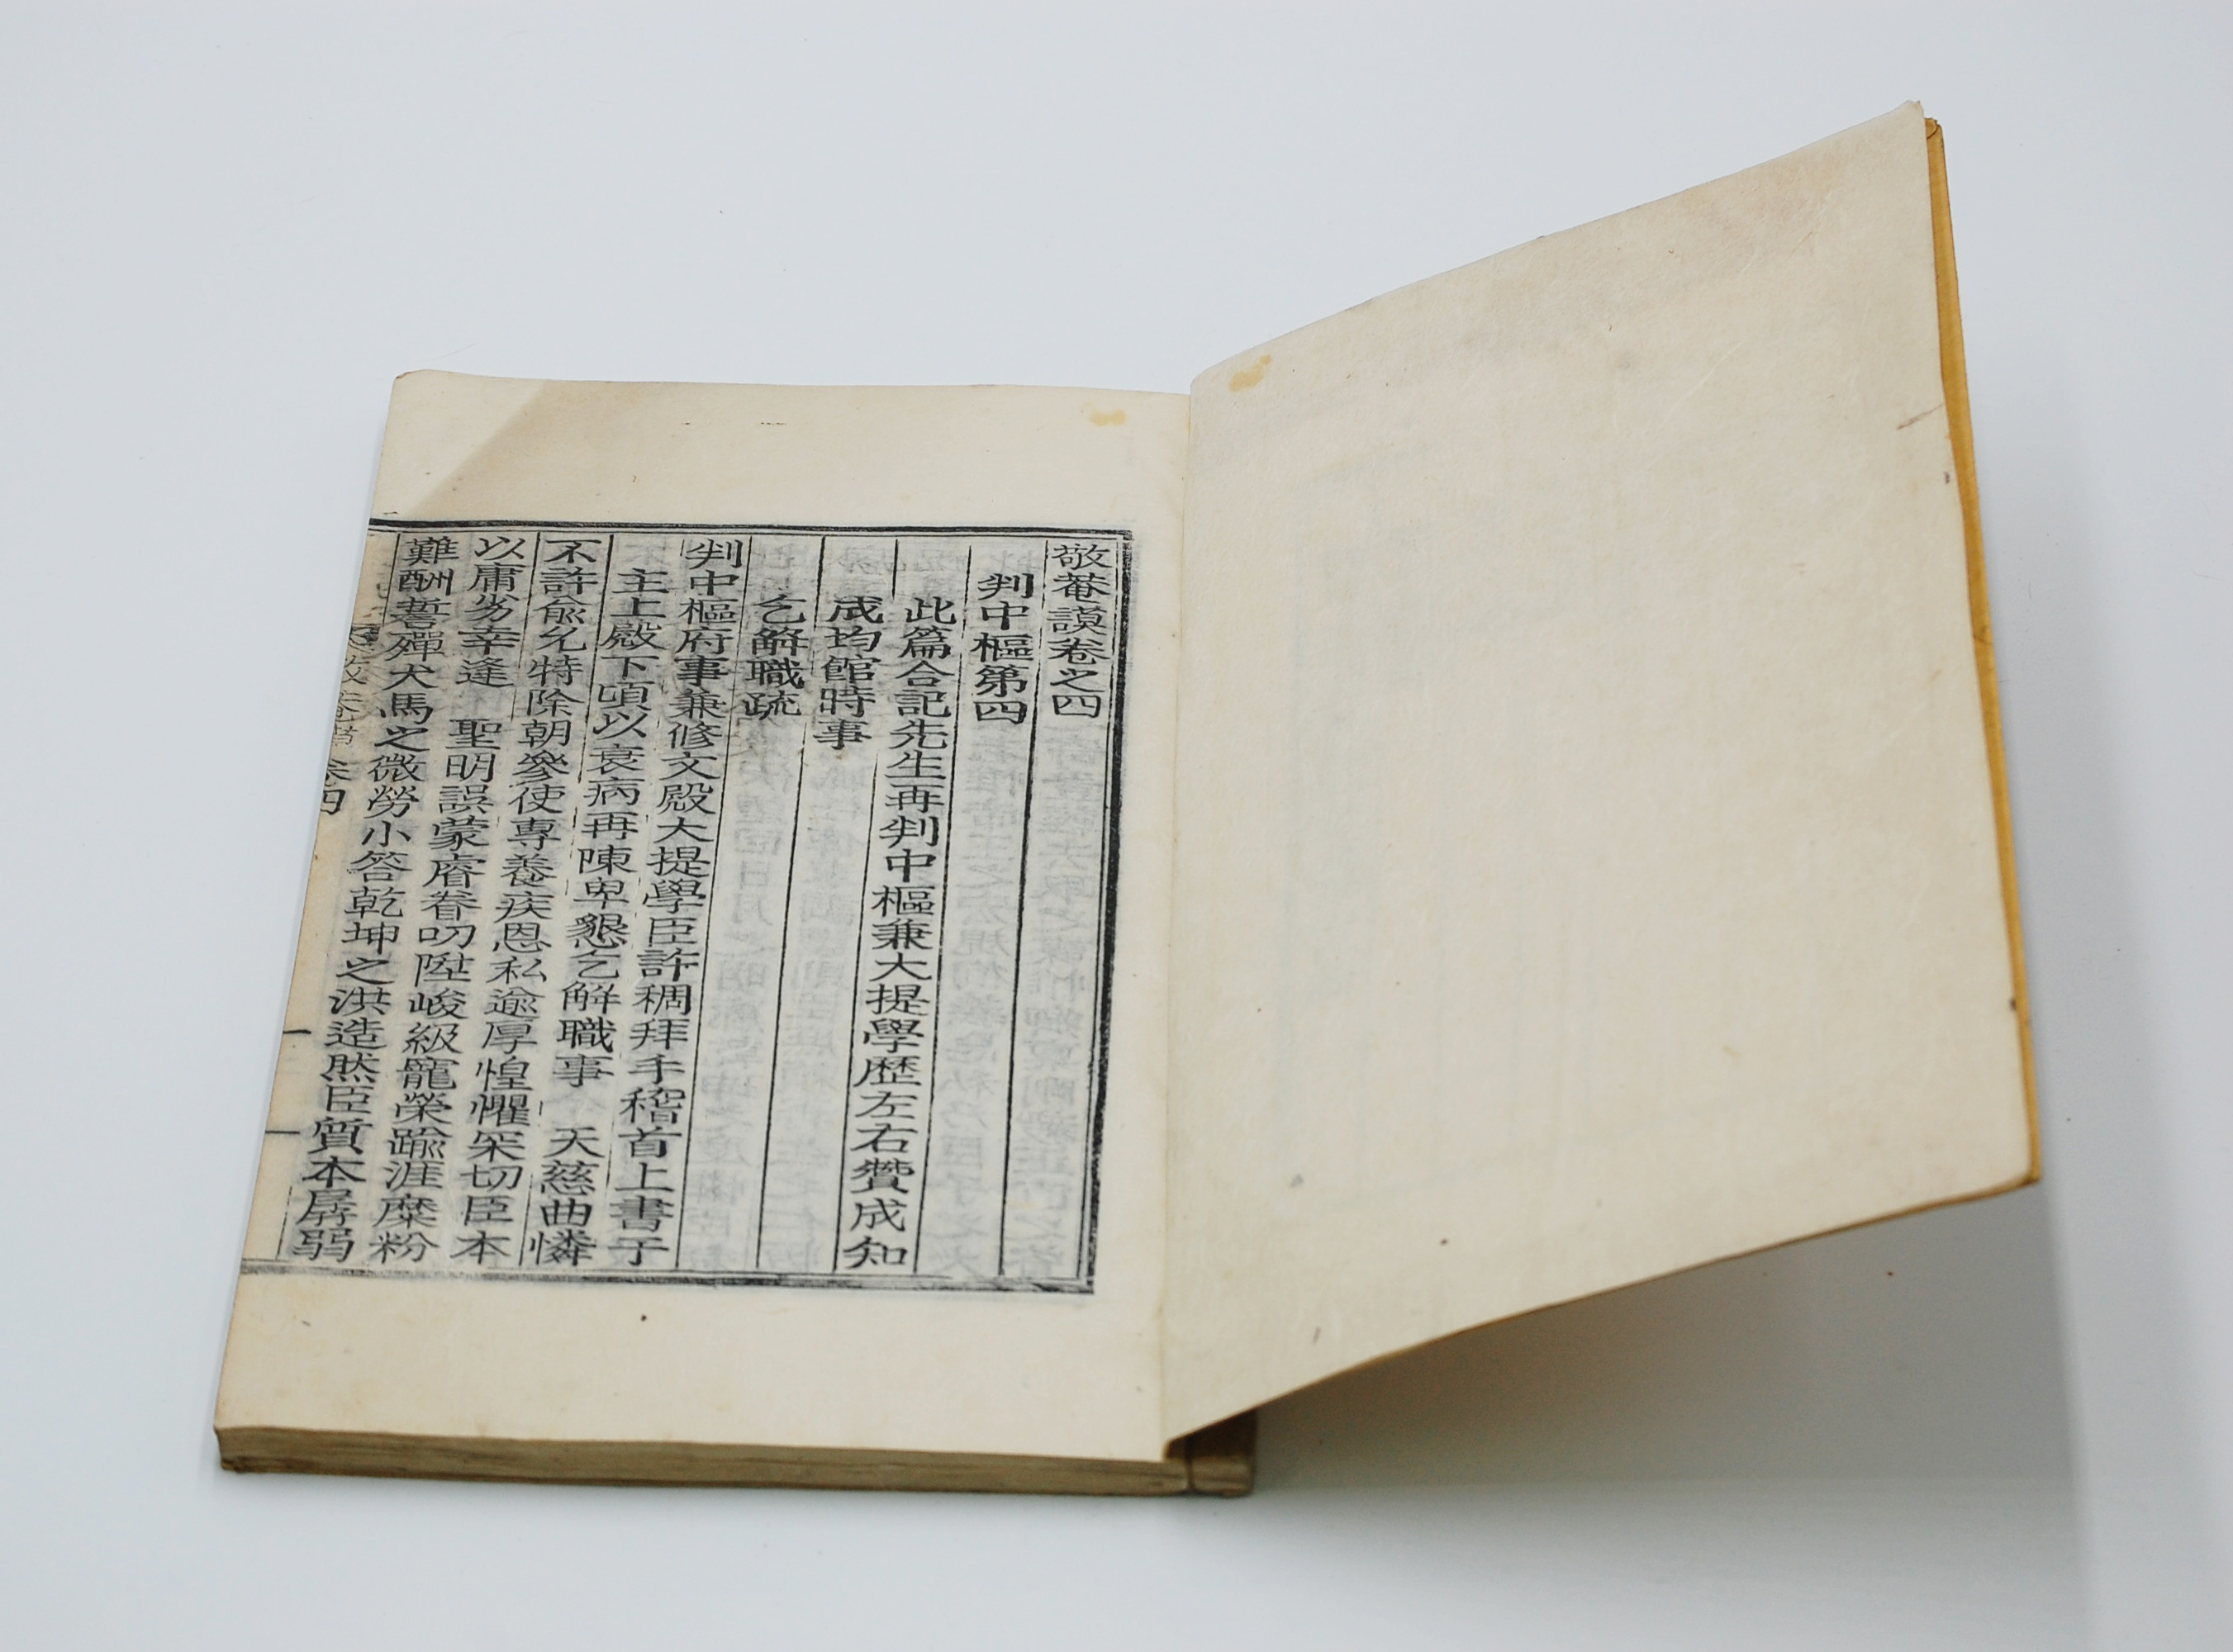 敬菴謨卷之四
判中樞第四
此篇合記先生再判中樞兼大提學歷左右贊成知
成均館時事
乞解職疏
判中樞府事兼修文殿大提學臣許稠拜手稽首上書于
主上殿下頃以衰病再陳卑懇乞解職事　天慈曲憐
不許兪允特除朝參使專養疾恩私逾厚惶懼罙切臣本
以庸劣幸逢　聖明誤蒙睿眷叨陞峻級寵榮踰涯糜粉
難酬誓殫犬馬之微勞小答乾坤之洪造然臣質本孱弱
卷四